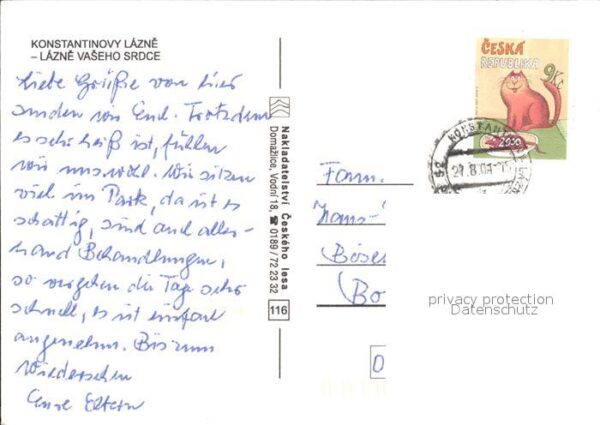 KONSTANTINOVY LÁZNĚ
– LÁZNĚ VAŠEHO SRDCE
Liebe Grüße von hier
senden von Eud. Trotzdem
es sehr heiß ist, fühlen
wir uns wohl. Wir sitzen
viel im Park, da ist es
schattig, sind auch aller-
hand Behandlungen,
so vergehen die Tage sehr
schnell, es ist einfach
angenehm. Bis zum
Wiedersehen
Eure Eltern
Nakladatelství Českého lesa
Domažlice, Vodní 18, ☎ 0189 / 72 23 32
116
ČESKÁ
REPUBLIKA
9Kč
2000
KONSTANT
27.8.01-15
Fam.
Hans-
Böse
Bo
privacy protection
Datenschutz